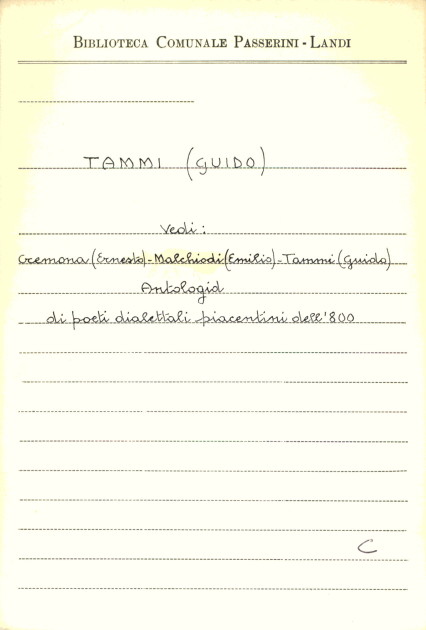 BIBLIOTECA COMUNALE PASSERINI - LANDI
TAMMI (GUIDO)
Vedi:
Cremona (Ernesto) - Malchiodi (Emilio) - Tammi (Guido)
Antologia
di poeti dialettali piacentini dell'800
C